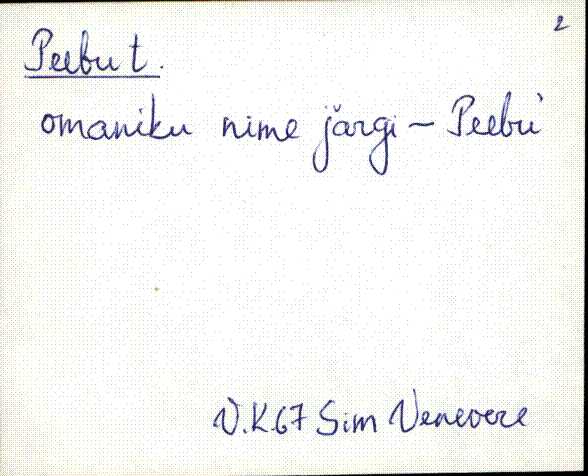 2
Peebu t.
omaniku nime järgi – Peebu
V.K67 Sim Venevere